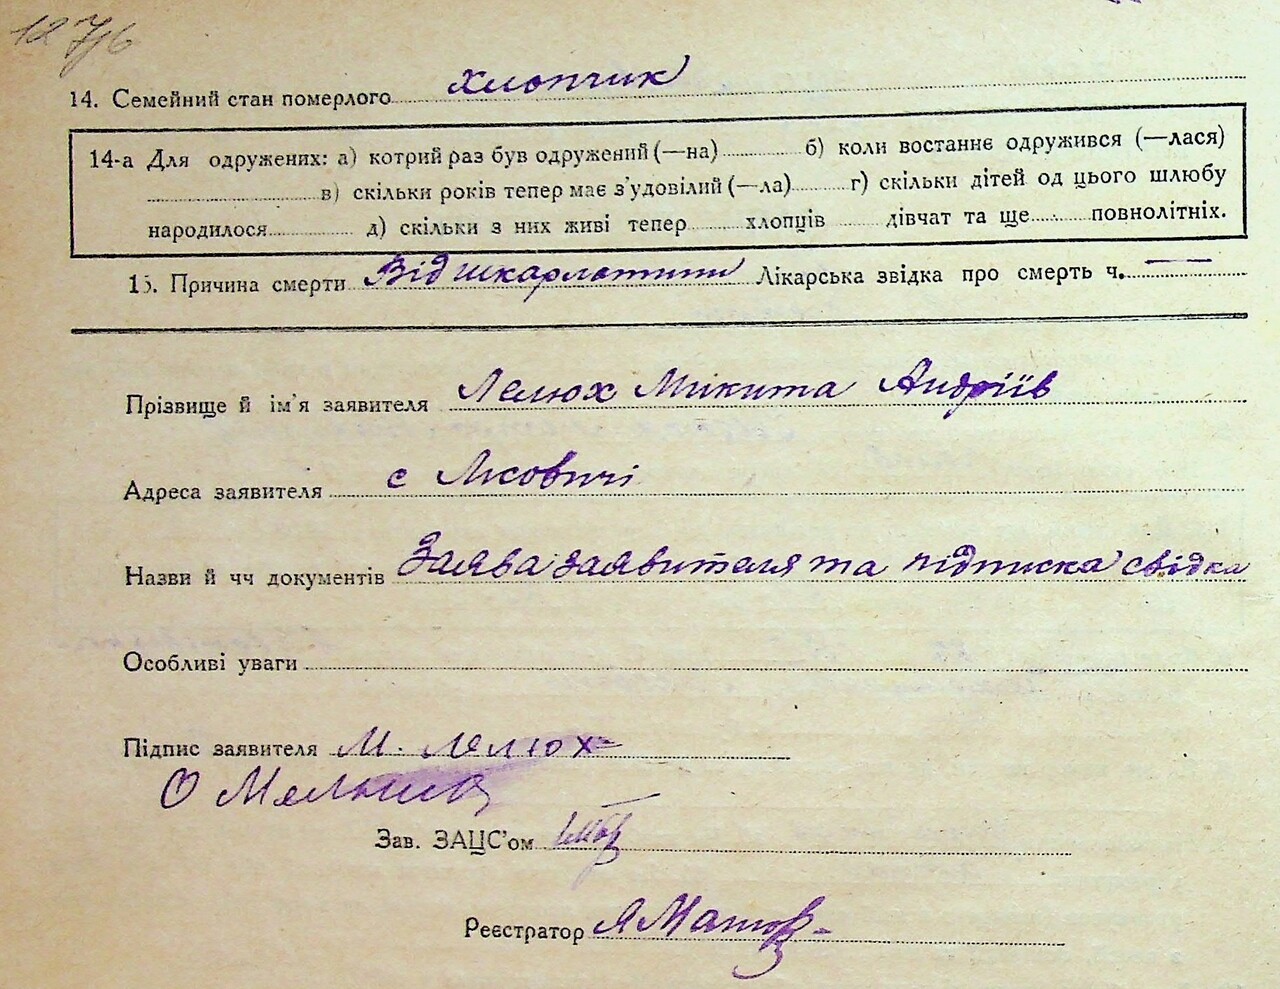 14. Семейний стан померлого хлопчик
14-а Для одружених: а) котрий раз був одружений (—на) б) коли востаннє одружився (—лася)
в) скільки років тепер має з'удовілий (—ла) г) скільки дітей од цього шлюбу
народилося д) скільки з них живі тепер хлопців дівчат та ще повнолітніх.
15. Причина смерти Від шкарлатини Лікарська звідка про смерть ч. —
Прізвище й ім'я заявителя Лелюх Микита Андріїв
Адреса заявителя с Лисовичі
Назви й чч документів Заява заявителя та підписка свідка
Особливі уваги
Підпис заявителя М. Лелюх
О Мельник
Зав. ЗАЦС'ом
Реєстратор